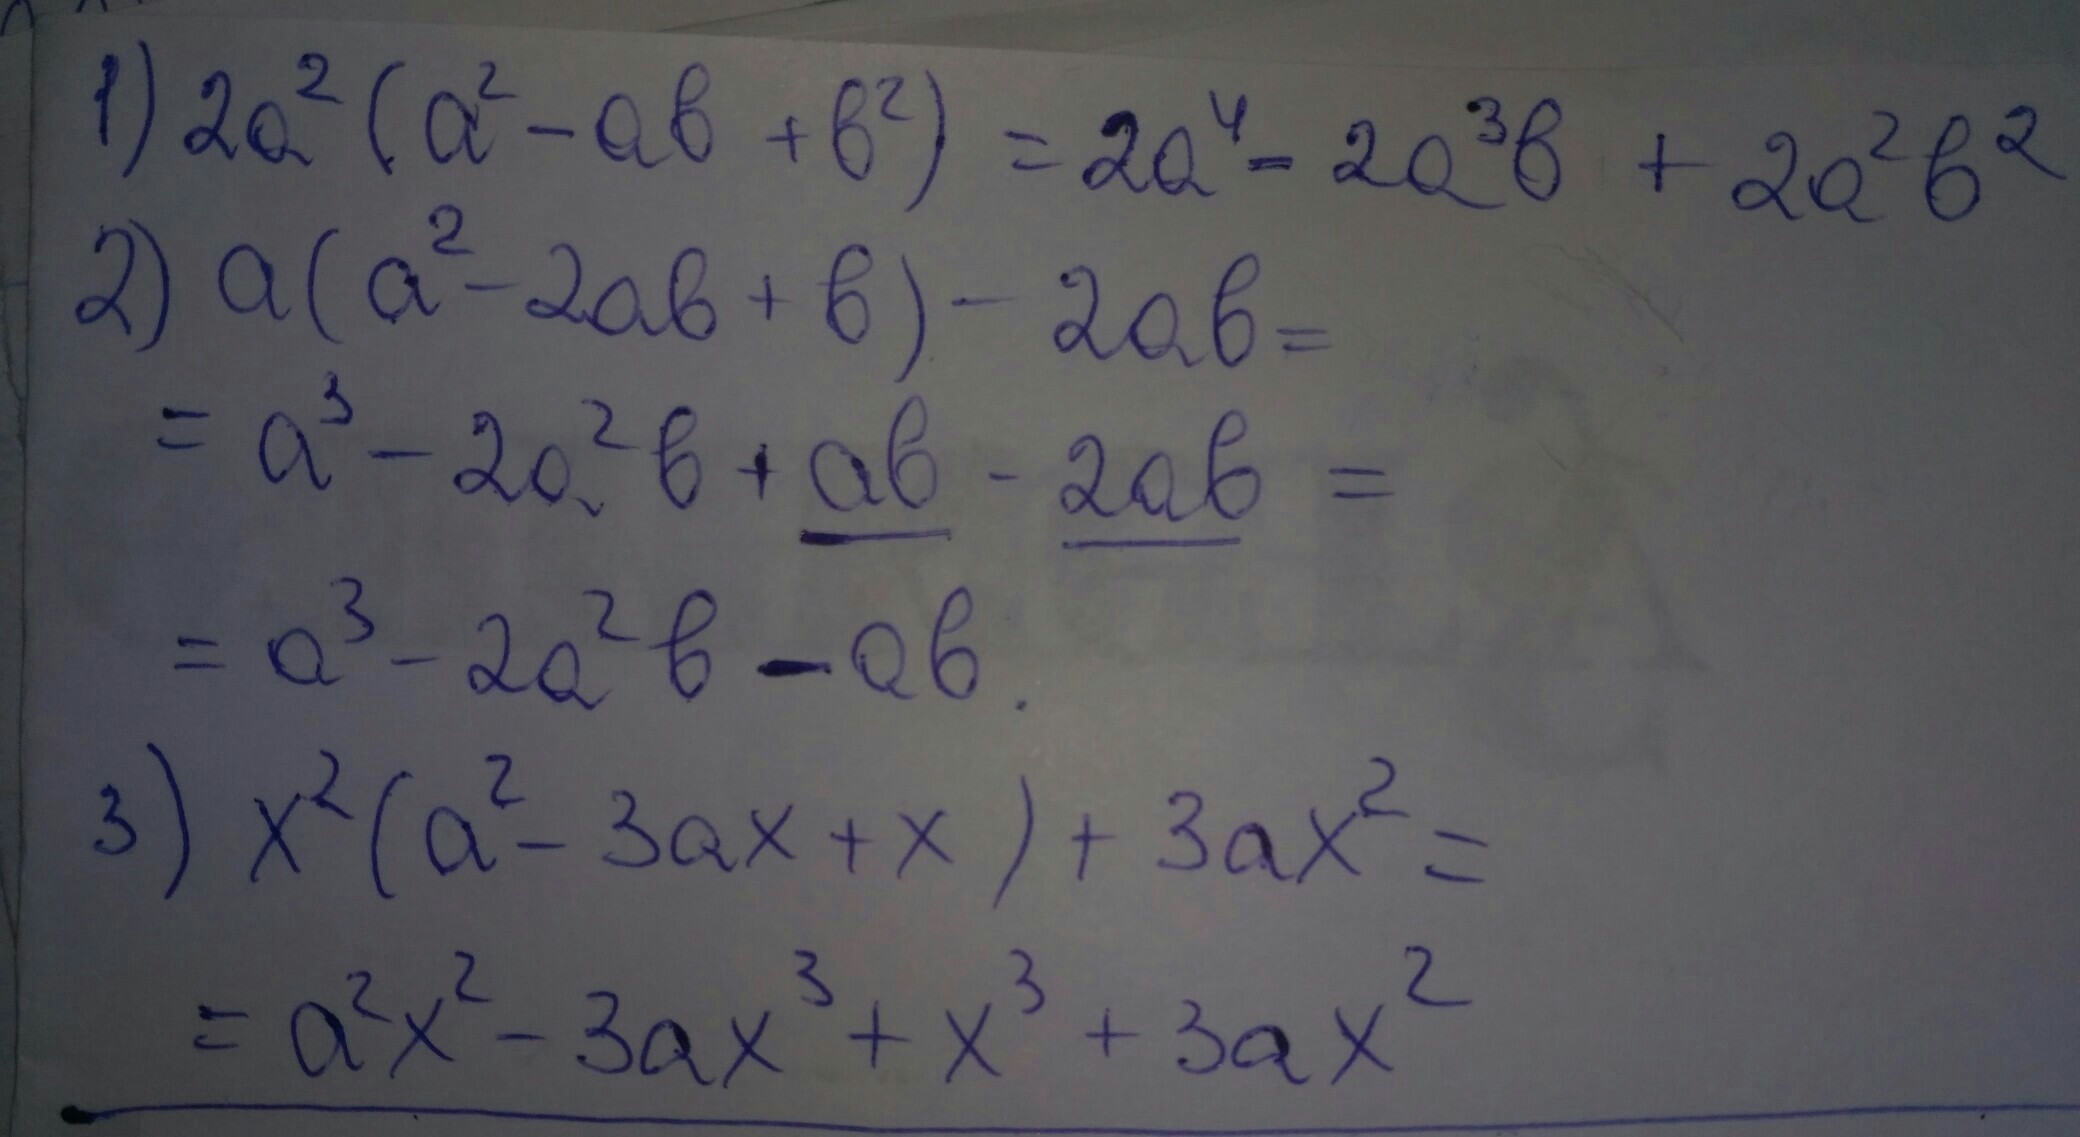 1) 2a²(a² - ab + b²) = 2a⁴ - 2a³b + 2a²b²
2) a(a² - 2ab + b) - 2ab =
= a³ - 2a²b + ab - 2ab =
= a³ - 2a²b - ab.
3) x²(a² - 3ax + x) + 3ax² =
= a²x² - 3ax³ + x³ + 3ax²